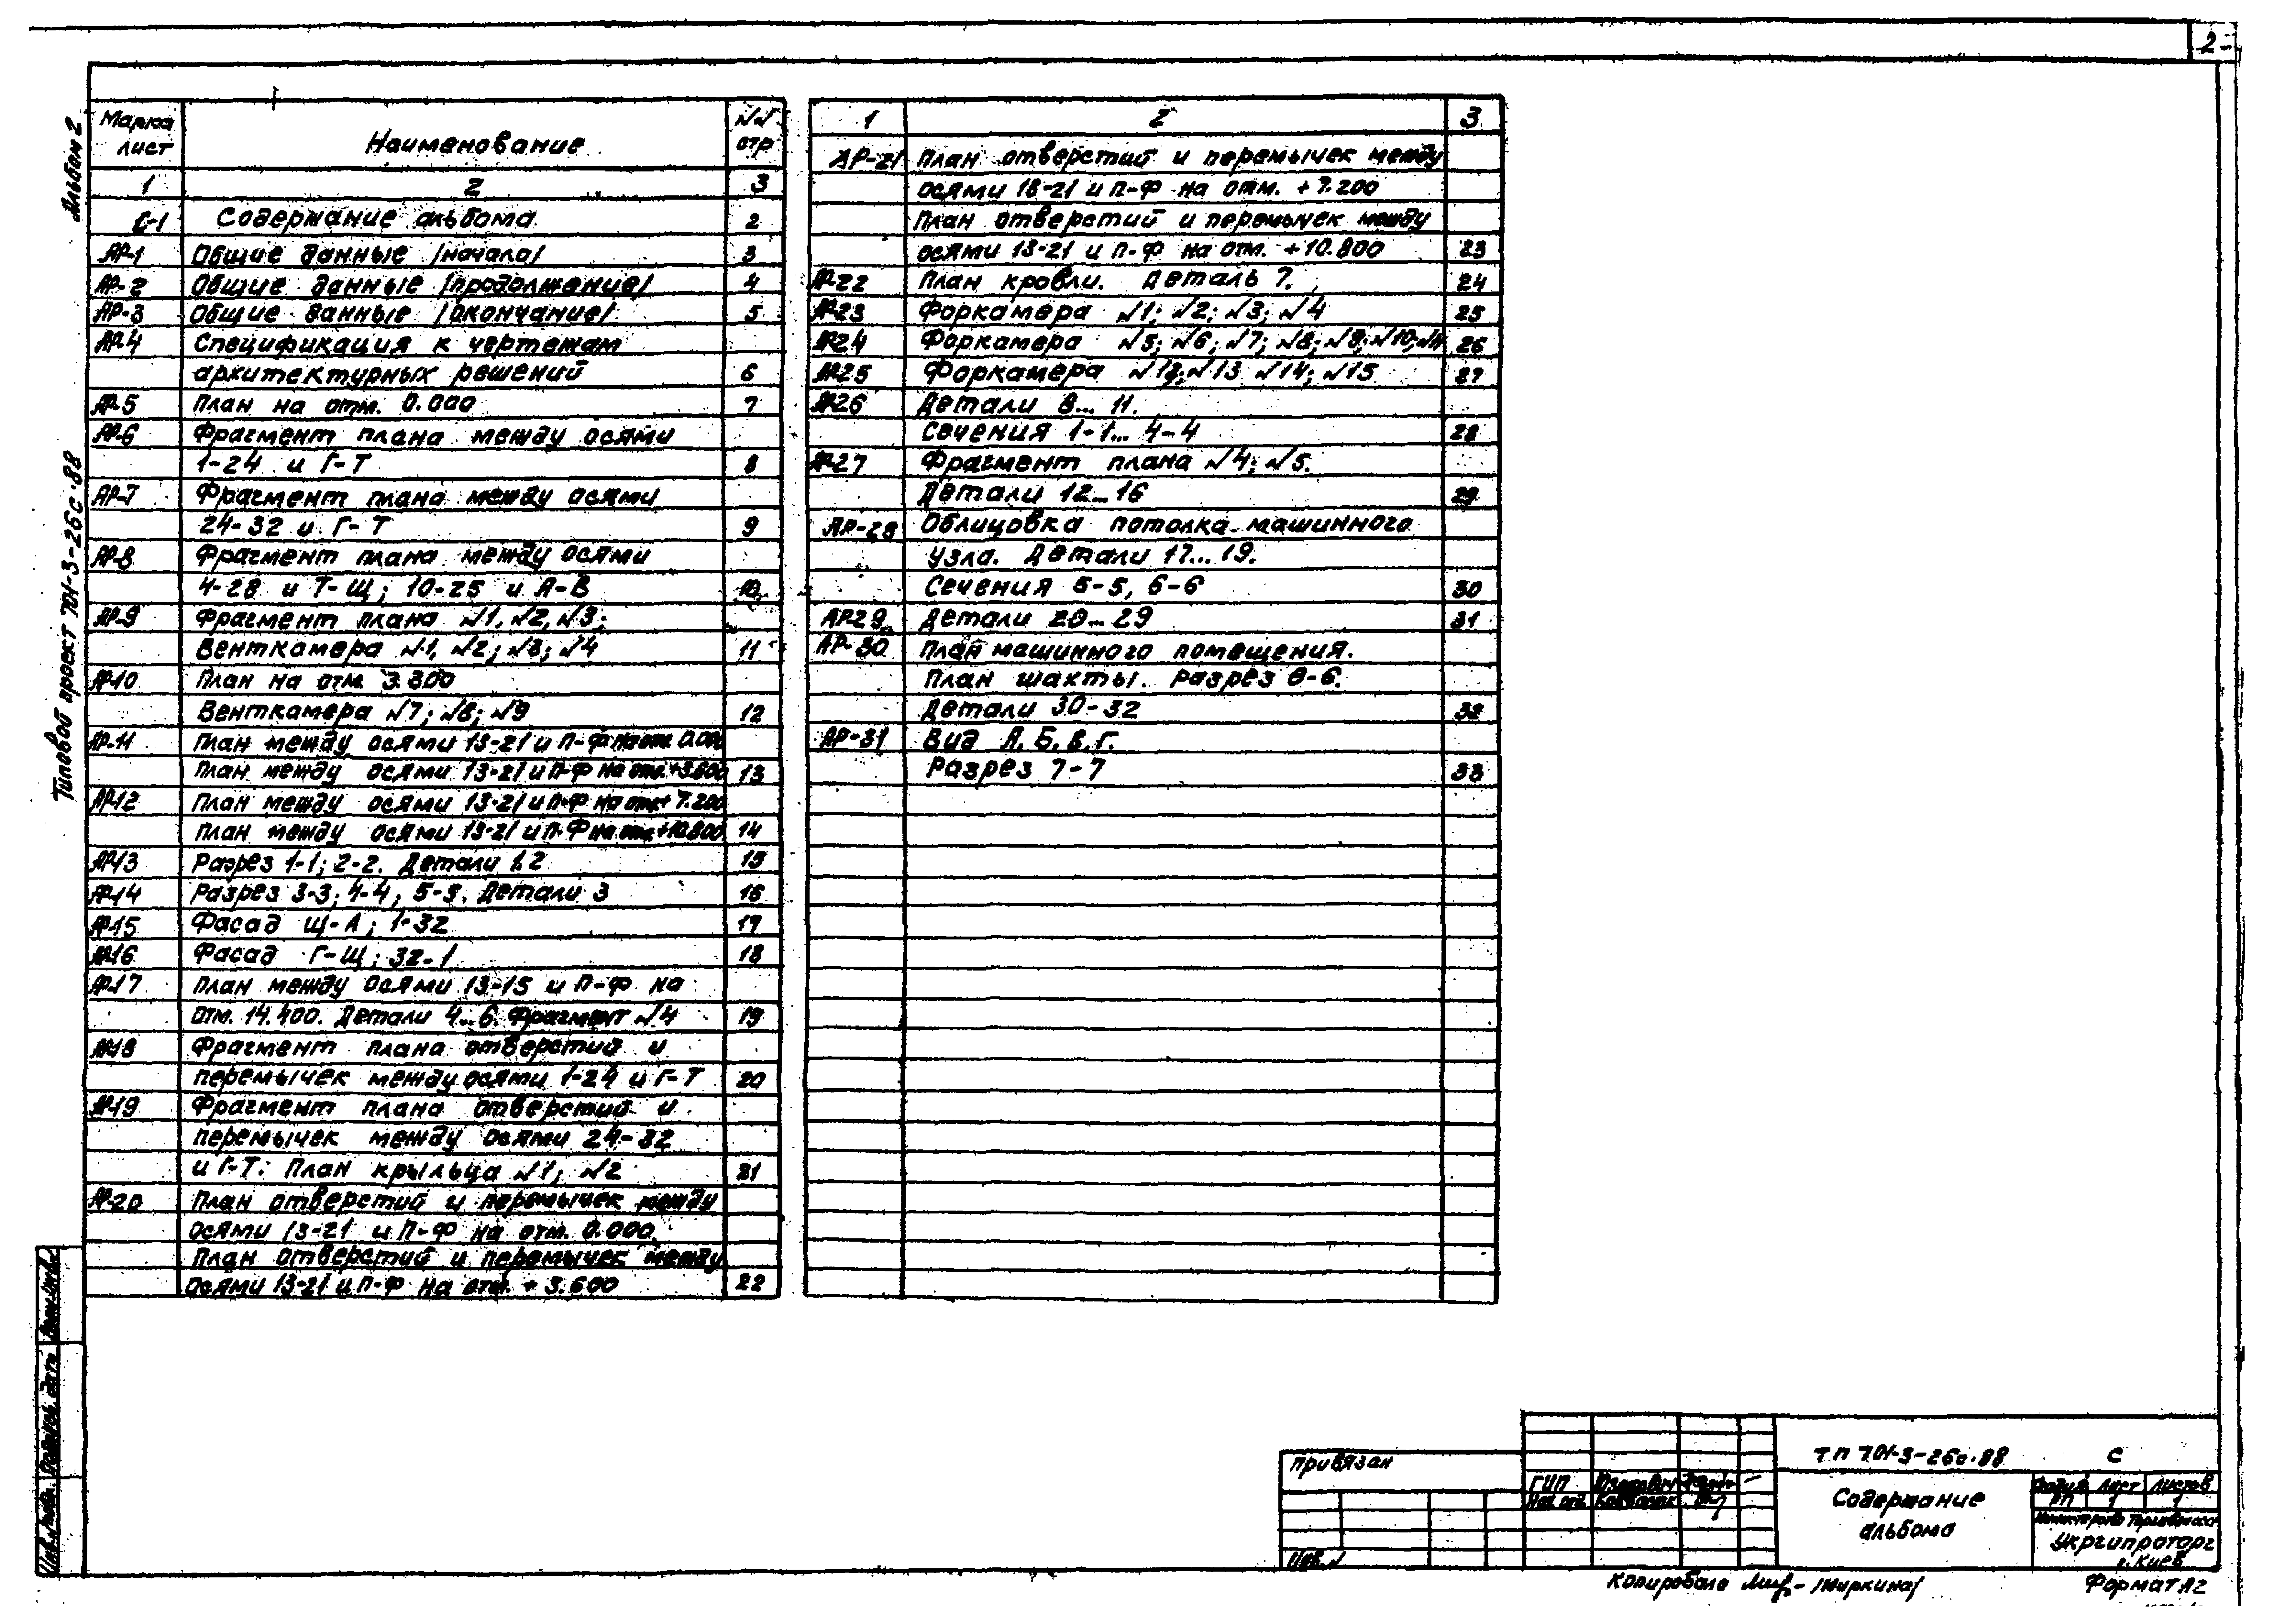 2
Альбом 2
Типовой проект 701-3-26с.88
Марка лист
Наименование
№№ стр
1 2 3
С-1 Содержание альбома 2
АР-1 Общие данные /начало/ 3
АР-2 Общие данные /продолжение/ 4
АР-3 Общие данные /окончание/ 5
АР-4 Спецификация к чертежам
архитектурных решений 6
АР-5 План на отм. 0.000 7
АР-6 Фрагмент плана между осями
1-24 и Г-Т 8
АР-7 Фрагмент плана между осями
24-32 и Г-Т 9
АР-8 Фрагмент плана между осями
4-28 и Т-Щ; 10-25 и А-В 10
АР-9 Фрагмент плана №1, №2, №3;
Венткамера №1, №2; №3; №4 11
АР-10 План на отм. 3.300
Венткамера №7; №8; №9 12
АР-11 План между осями 13-21 и П-Ф на отм. 0.000
План между осями 13-21 и П-Ф на отм. +3.600 13
АР-12 План между осями 13-21 и П-Ф на отм. + 7.200
План между осями 13-21 и П-Ф на отм. +10.800 14
АР-13 Разрез 1-1; 2-2. Детали 1.2 15
АР-14 Разрез 3-3; 4-4; 5-5. Детали 3 16
АР-15 Фасад Щ-А; 1-32 17
АР-16 Фасад Г-Щ; 32-1 18
АР-17 План между осями 13-15 и П-Ф на
отм. 14.400. Детали 4...6. Фрагмент №4 19
АР-18 Фрагмент плана отверстий и
перемычек между осями 1-24 и Г-Т 20
АР-19 Фрагмент плана отверстий и
перемычек между осями 24-32
и Г-Т. План крыльца №1; №2 21
АР-20 План отверстий и перемычек между
осями 13-21 и П-Ф на отм. 0.000
План отверстий и перемычек между
осями 13-21 и П-Ф на отм. + 3.600 22
1 2 3
АР-21 План отверстий и перемычек между
осями 13-21 и П-Ф на отм. + 7.200
План отверстий и перемычек между
осями 13-21 и П-Ф на отм. +10.800 23
АР-22 План кровли. Деталь 7. 24
АР-23 Форкамера №1; №2; №3; №4 25
АР-24 Форкамера №5; №6; №7; №8; №9; №10; №11 26
АР-25 Форкамера №12; №13 №14; №15 27
АР-26 Детали 8... 11.
Сечения 1-1... 4-4 28
АР-27 Фрагмент плана №4; №5.
Детали 12...16 29
АР-28 Облицовка потолка машинного
узла. Детали 17...19.
Сечения 5-5, 6-6 30
АР-29 Детали 20...29 31
АР-30 План машинного помещения.
План шахты. Разрез 6-6.
Детали 30-32 32
АР-31 Вид А. Б. В. Г.
Разрез 7-7 33
Инв.№подл. Подпись и дата
Привязан
Инв.№
ГИП
Нач. отд.
ТП 701-3-26с.88 С
Содержание
альбома
Стадия Лист Листов
РП 1 1
Министерство
Укргипроторг
г. Киев
Копировала /Миркина/
Формат А2